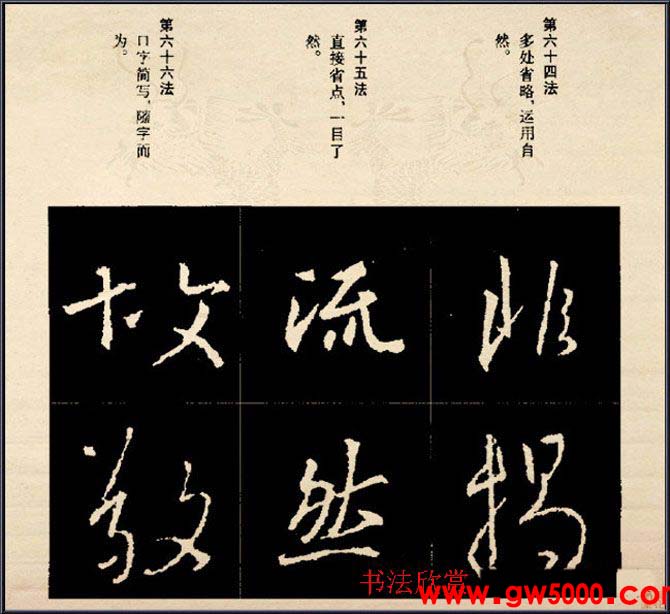 第六十四法
多处省略，运用自
然。
第六十五法
直接省点，一目了
然。
第六十六法
口字简写，随字而
为。
非
流
然
故
敬
书法欣赏
www.gw5000.com